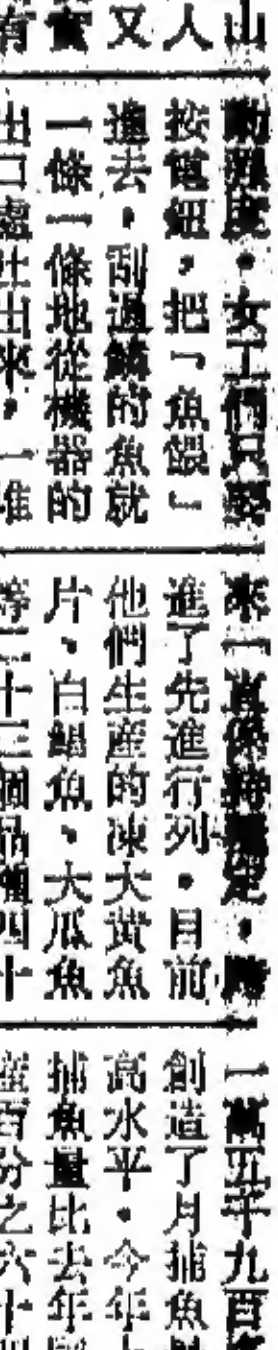 山
人
又
女工們只要
按電鈕，把「魚餵」
進去，刮過鱗的魚就
一條一條地從機器的
出口處吐出來，一堆
來一直保持穩定，跨
進了先進行列。目前
他們生産的凍大黃魚
片、白鯧魚、大瓜魚
等二十三個品種四十
一萬五千九百
創造了月捕魚
高水平。今年
捕魚量比去年
産百分之六十